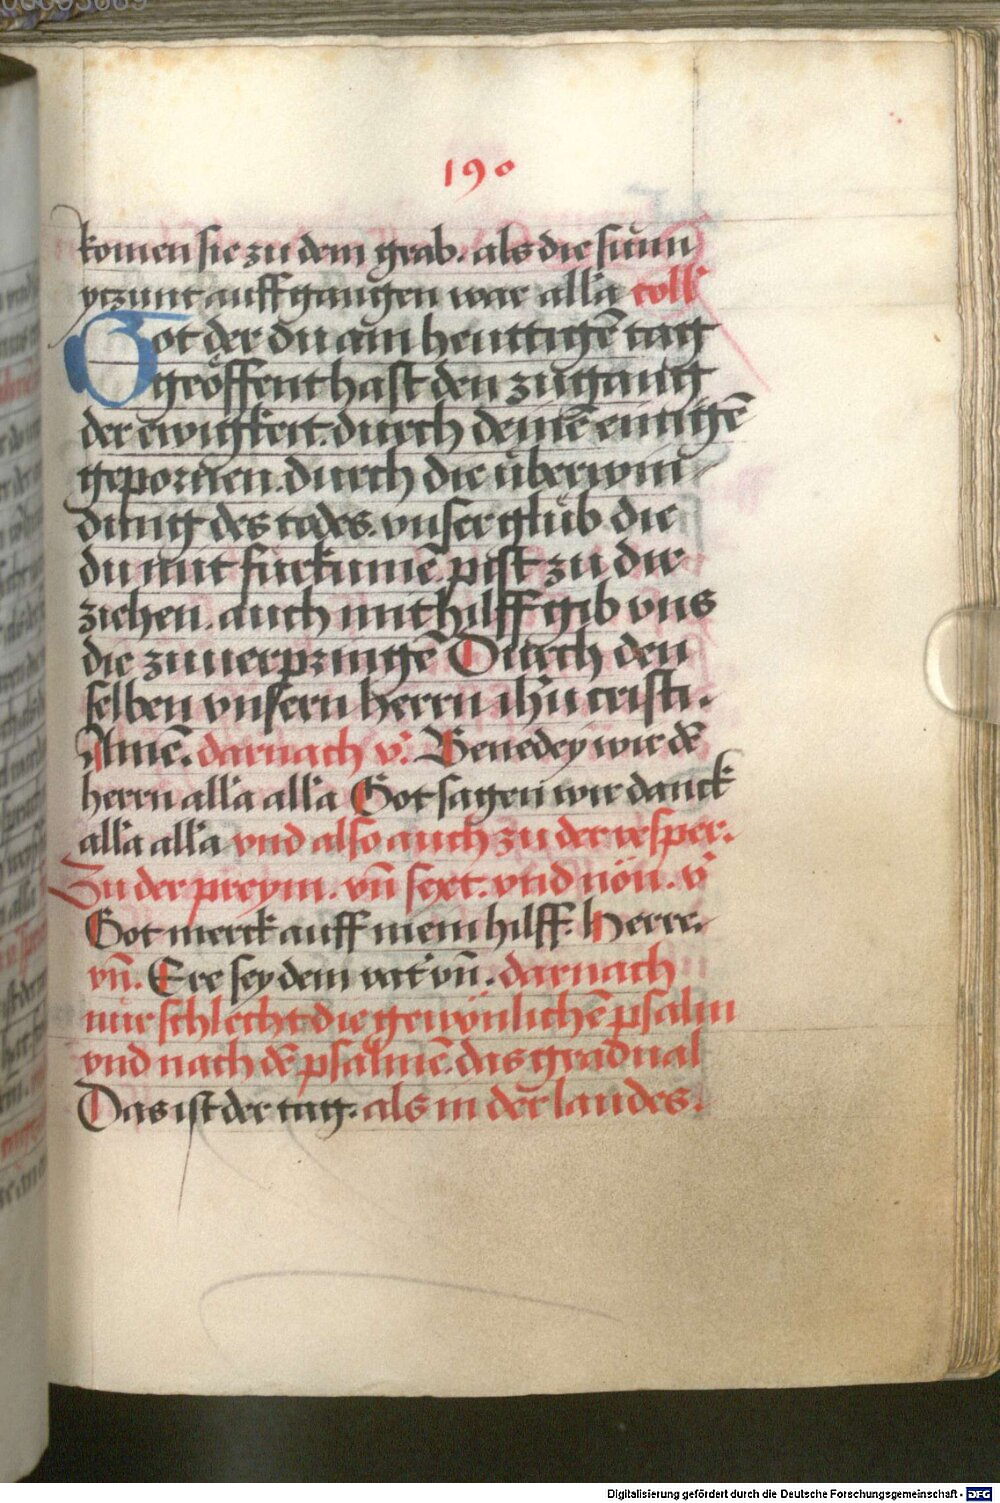 190
komen sie zu dem grab. als die sunn
yczunt auffgangen war all'a coll'
Got der du am heuttigē tag
geöffent hast den zugang
der ewigkeit. durch deinē einigē
gepornen. durch die überwin
dung des todes. vnser glüb die
du mit fürkumē pist zu dir
ziehen. auch mit hilff gib vns
die zuuerpringē Durch den
selben vnsern herrn ih'u cristi.
Amē. darnach v'. Benedey wir dē
herrn all'a all'a Got sagen wir danck
all'a all'a vnd also auch zu der vesper.
Zu der preym. vn̄ sext. vnd nön. v'
Got merck auff mein hilff. Herre.
vn̄. Ere sey dem vat' vn̄. darnach
nur schlecht die gewönlichē psalm
vnd nach dē psalmē. das gradual
Das ist der tag. als in der laudes.
Digitalisierung gefördert durch die Deutsche Forschungsgemeinschaft - DFG